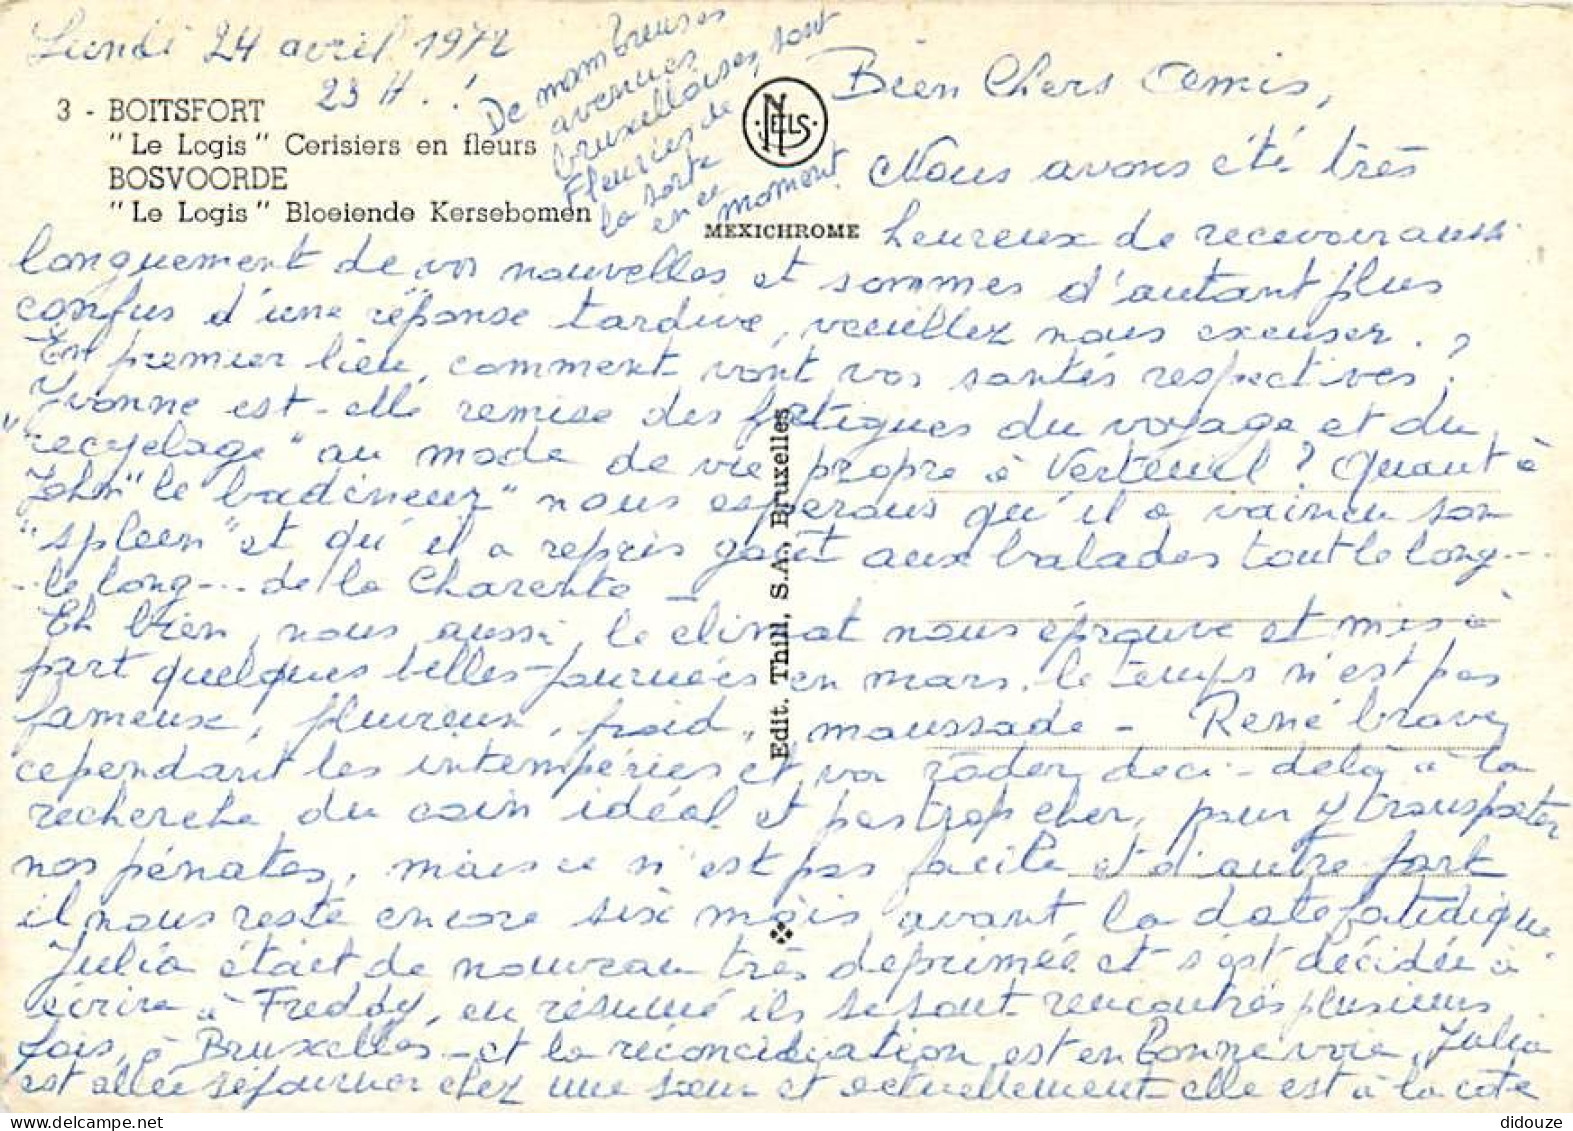 Lundi 24 avril 1972
23 H. !
3 - BOITSFORT
"Le Logis" Cerisiers en fleurs
BOSVOORDE
"Le Logis" Bloeiende Kersebomen
De nombreuses
avenues
bruxelloises, sont
fleuries de
la sorte
en ce
moment.
NELS
MEXICHROME
Edit. Thill, S.A., Bruxelles
Bien Chers Amis,
Nous avons été très
heureux de recevoir aussi
longuement de vos nouvelles et sommes d'autant plus
confus d'une réponse tardive, veuillez nous excuser.
En premier lieu, comment vont vos santés respectives ?
Yvonne est-elle remise des fatigues du voyage et du
"recyclage" au mode de vie propre à Verteuil ? Quant à
John "le badineur" nous espérons qu'il a vaincu son
"spleen" et qu'il a repris goût aux balades tout le long...
...le long... de la Charente -
Eh bien, nous aussi, le climat nous éprouve et mis à
part quelques belles journées en mars, le temps n'est pas
fameux, pluvieux, froid, maussade - René brave
cependant les intempéries et va rôder, deci-delà à la
recherche du coin idéal et pas trop cher, pour y transporter
nos pénates, mais ce n'est pas facile et d'autre part
il nous reste encore six mois avant la date fatidique
Julia était de nouveau très déprimée et s'est décidée à
écrire à Freddy, en résumé ils se sont rencontrés plusieurs
fois, à Bruxelles - et la réconciliation est en bonne voie, Julia
est allée séjourner chez une sœur et actuellement elle est à la côte
didouze